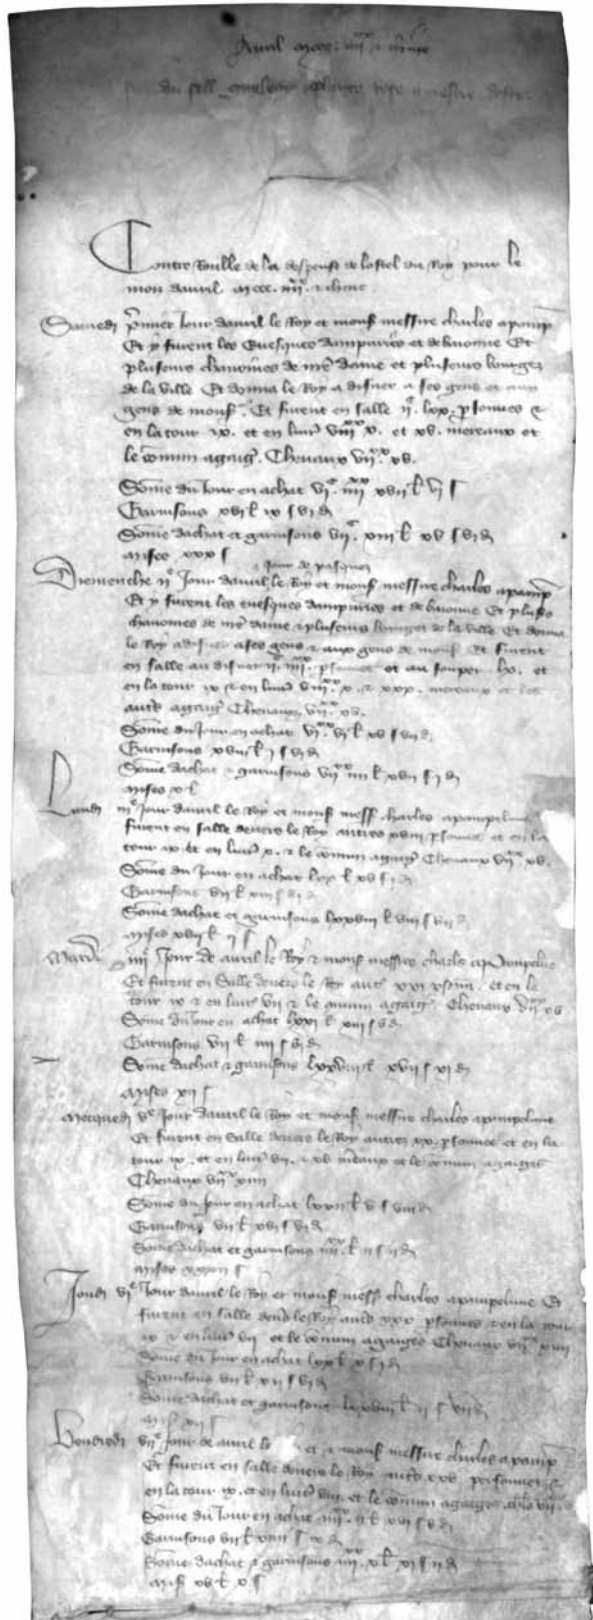 Avril mccc iiii^xx
du sell
Contre Roulle de la despense de lostel du Roy pour le
mois davril mccc. iiii^xx.
Samedi p^mier Jour davril le Roy et mons^r messire charles a pamp^
Et y furent les Euesques dampuries et de baionne Et
plusieurs chanoines de n^re dame et plusieurs bourges
de la ville Et donna le Roy a disner a ses gens et aux
gens de mons^r. Et furent en salle ii^c. lxx. p^sonnes et
en la tour ix. et en liur^ viii^xx x. et xv. mereaux et
le comun agaig^. Cheuaux vii^xx. xv.
Some du Jour en achat vi^c iiii^xx xvii l^ vi s
Garnisons xvi l^ ix s vi d
Some dachat et garnisons vii^c xiii l^ xv s vi d
mises xxx s
Jour de pasques
Diemenche ii^e Jour davril le Roy et mons^r messire charles a pamp^
Et y furent les euesques dampuries et de baionne Et plus^s
chanoines de n^re dame et plusieurs bourges de la ville Et donna
le Roy a disner a ses gens et aux gens de mons^r Et furent
en salle au disner p^sonnes et au souper lx. et
en la tour ix et en liur^ viii^xx. x. et xxx. mereaux et les
aut^s agaig^ Cheuaux vii^xx. xv.
Some du Jour en achat vi^xx vi l^ xv s vii d
Garnisons xvii l^ i s vi d
Some dachat et garnisons vii^xx iiii l^ xvii s i d
mises x l^
Lundi iii^e Jour davril le Roy et mons^r mess^ charles a pampelune
furent en salle deuers le Roy autres xviii p^sonnes et en la
tour ix et en liur^ x. et le comun agaig^ Cheuaux vii^xx xv.
Some du Jour en achat lxx l^ xv s i d
Garnisons vii l^ xiii s vi d
Some dachat et garnisons lxxviii l^ viii s vii d
mises xvii l^ ii s
Mardi iiii^e Jour de avril le Roy et mons^r messire charles a Pampelune
Et furent en Salle deuers le Roy aut^s xxi p^sonn^ et en la
tour ix et en liur^ vii et le comun agaig^. Cheuaux vii^xx xv
Some du Jour en achat lxxi l^ xiii s v d
Garnisons vii l^ iiii s vi d
Some dachat et garnisons lxxviii l^ xvii s xi d
mises xii s
Mecquedi v^e Jour davril le Roy et mons^r messire charles a pampelune
Et furent en Salle deuers le Roy autres xx. p^sonnes et en la
tour ix. et en liur^ vii. et xv m^eaux et le comun agaiges
Cheuaux vii^xx xiiii
Some du Jour en achat lxxii l^ v s viii d
Garnisons vii l^ xvi s vi d
Some dachat et garnisons iiii^xx. l^ ii s ii d
mises xxxii s
Joudi vi^e Jour davril le Roy et mons^r mess^ charles a pampelune Et
furent en salle deu^s le Roy aut^s xxx p^sonnes et en la tour
ix et en liur^ vii et le comun agaiges Cheuaux vii^xx xiiii
Some du Jour en achat lxx l^ x s i d
Garnisons vii l^ xii s vi d
Some dachat et garnisons lxxviii l^ ii s vii d
mis^ xii s
Vendredi vii^e Jour de avril le et mons^r messire charles a pamp^
Et furent en salle deuers le Roy aut^s xxv personnes et
en la tour ix. et en liur^ viii. et le comun agaiges
Some du Jour en achat iiii^xx. ii l^ xvi s v d
Garnisons vii l^ xiiii s ix d
Some dachat et garnisons iiii^xx. x l^ xi s ii d
mis^ xv l^ x s